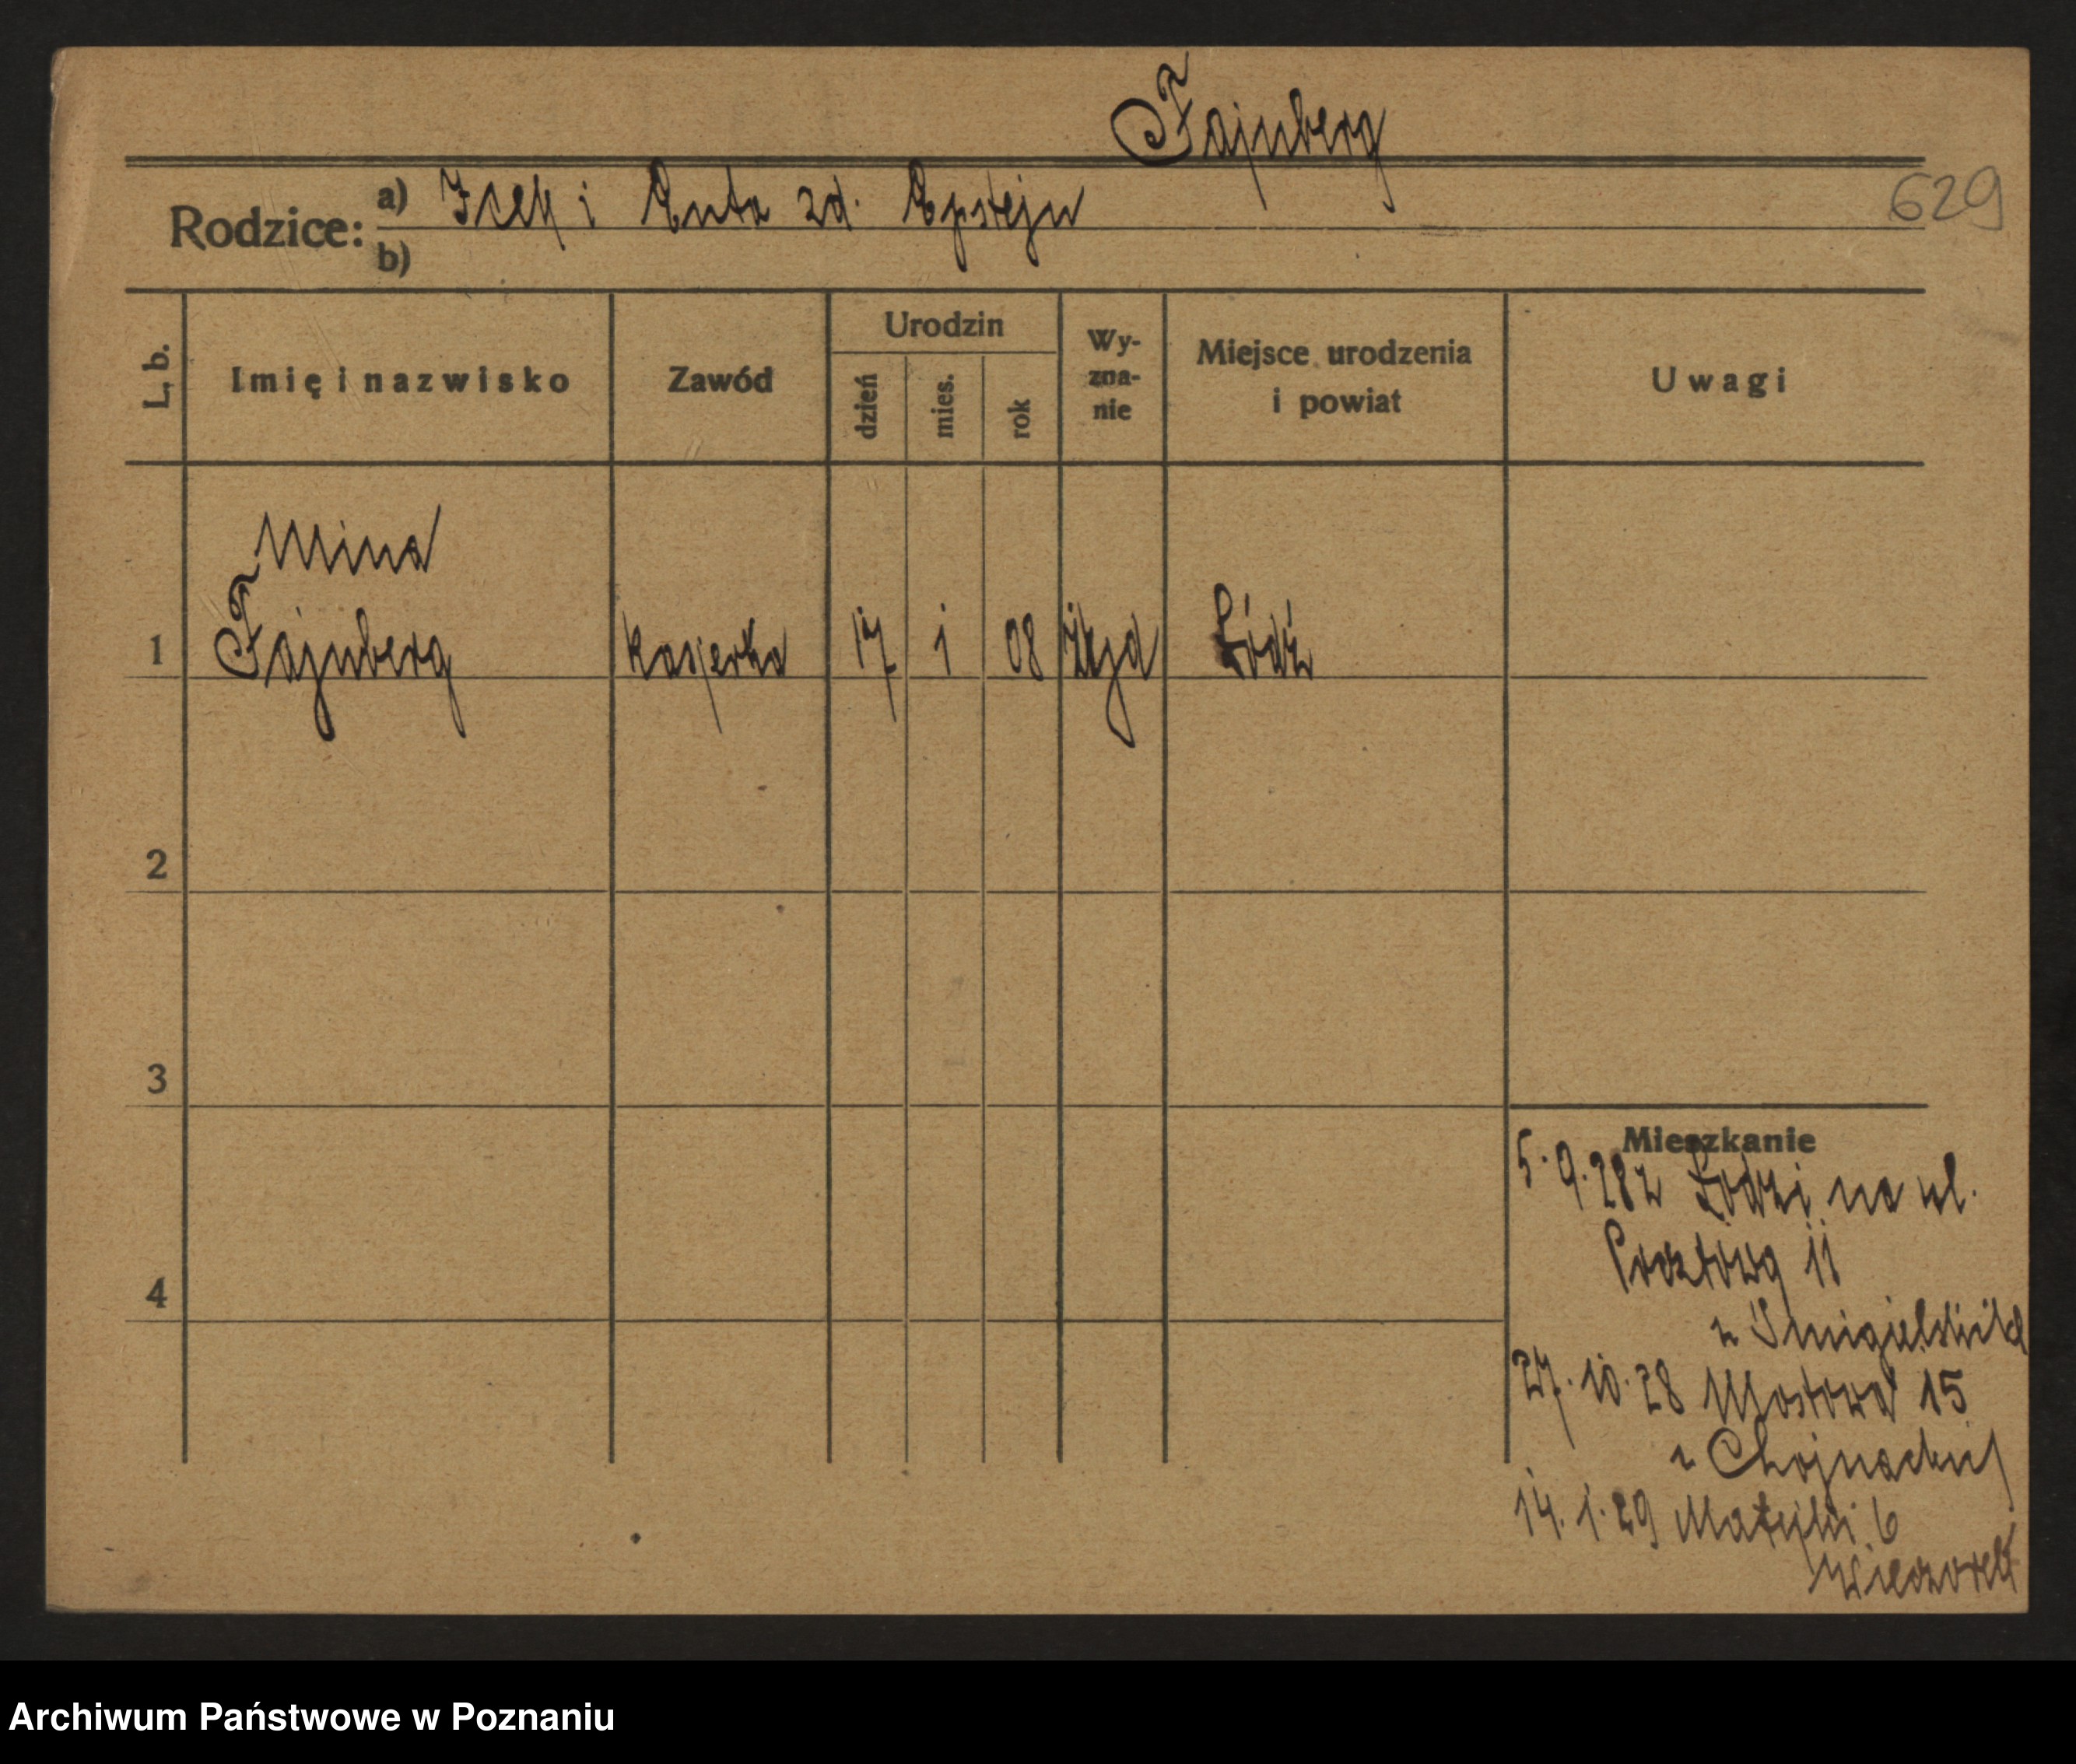 Fajnberg
629
Rodzice: a) Icek i Enta zd. Epstejn
b)
L. b.
Imię i nazwisko
Zawód
Urodzin
dzień
mies.
rok
Wy-
zna-
nie
Miejsce urodzenia
i powiat
Uwagi
Mina
1 Fajnberg kasjerka 17 1 08 Łódź
2
3
4
Mieszkanie
5.9.28 z Łodzi na ul.
Pocztową 11
27.10.28 Mostowa 15
14.1.29 Matejki 6
Wieczorek
Archiwum Państwowe w Poznaniu